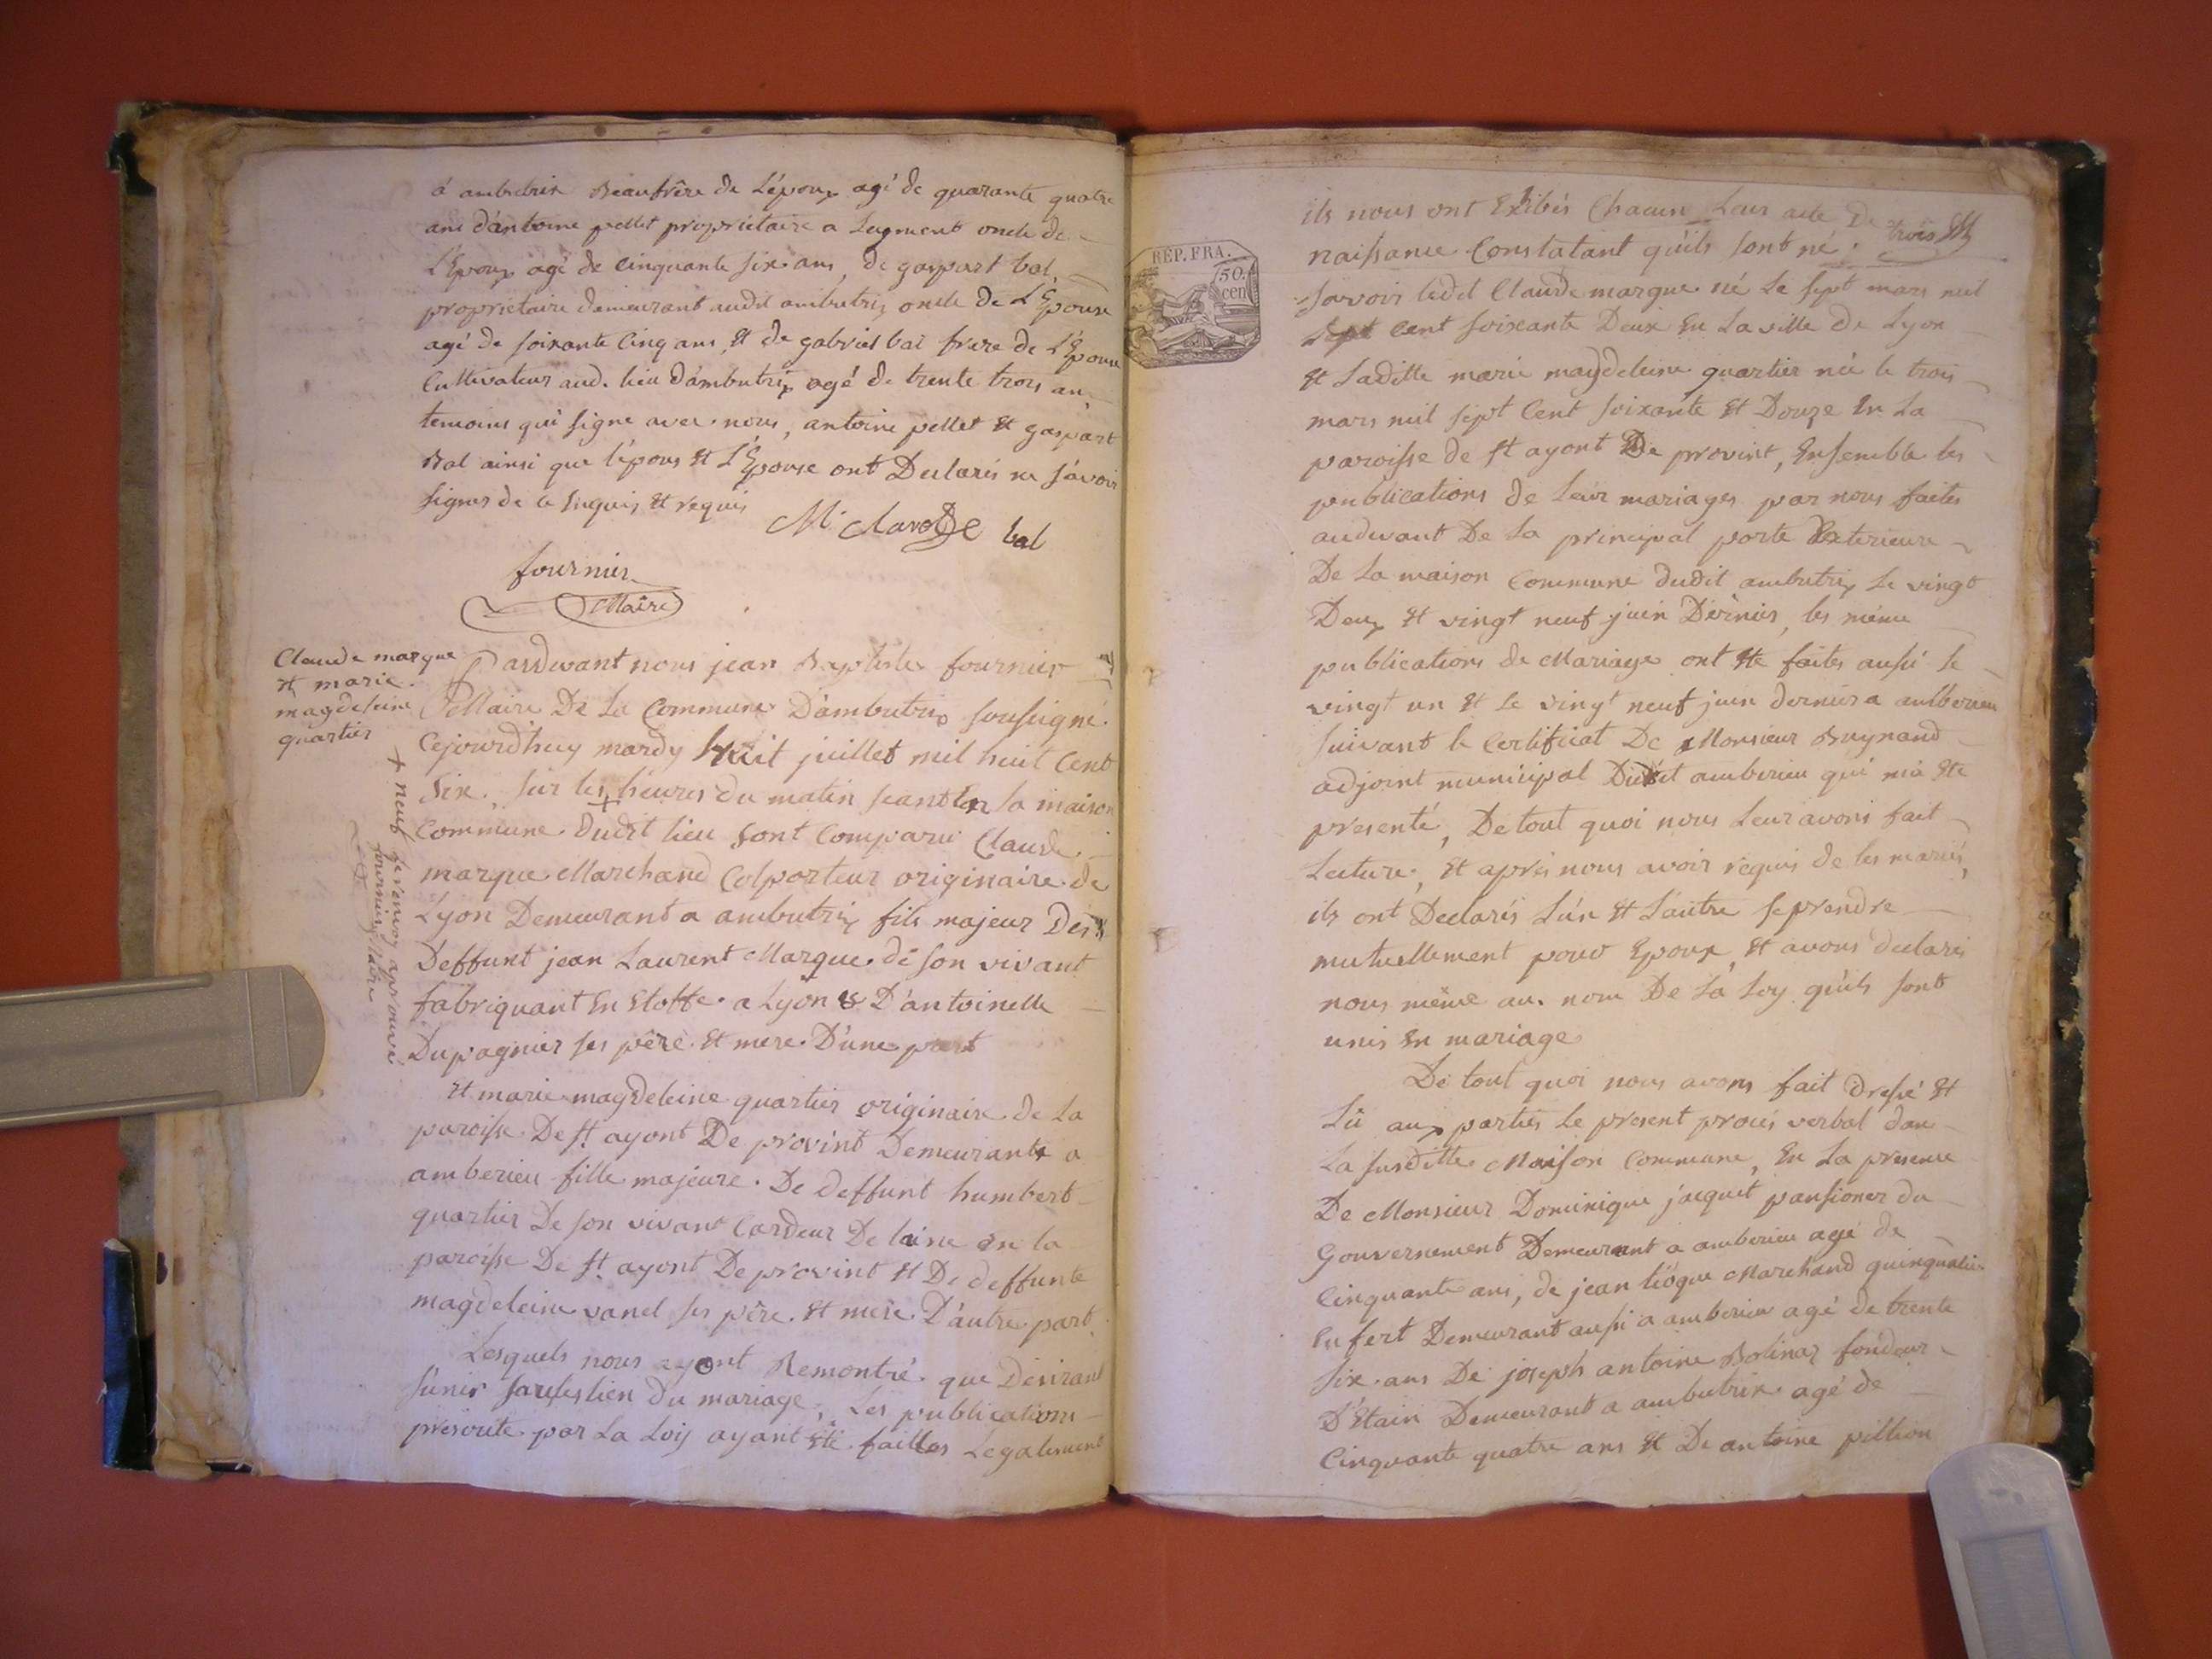 á ambutrix Beaufrêre de L'époux agé de quarante quatre
ans d'antoine pellet proprietaire a Lagment oncle de
L'Epoux agé de Cinquante six ans, de gaspart bal,
proprietaire demeurant audit ambutrix oncle de L'Epouse
agé de soixante Cinq ans, Et de gabriel bal frere de L'Epouse
Cultivateur aud. lieu d'ambutrix agé de trente trois an,
temoins qui signe avec nous, antoine pellet Et gaspart
Bal ainsi que l'épous Et L'Epouse ont Declarés ne sávoir
signer de ce Enquis Et requis
bal
fournier
Maire
Claude marque
et marie
magdeleine
quartier
Pardevant nous jean Baptiste fournier
Maire De La Commune D'ambutrix soussigné
Cejourdhuy mardy huit juillet mil huit Cent
Six, sur les + heures du matin seant En la maison
Commune dudit lieu sont Comparu Claude
marque Marchand Colporteur originaire de
Lyon Demeurant a ambutrix fils majeur Des
Deffunt jean Laurent Marque de son vivant
fabriquant En Etoffe a Lyon & D'antoinette
Dupagnier ses pêre Et mere D'une part
+ neuf le renvoy aprouvé
fournier Maire
Et marie magdeleine quartier originaire de La
paroisse De St ayont De provint Demeurante a
amberieu fille majeure De deffunt humbert
quartier De son vivant Cardeur De laine En la
paroisse De St ayont De provint Et De deffunte
magdeleine vanel ses pêre Et mere D'autre part
Lesquels nous ayont Remontré que Desirant
s'unir sous les lien du mariage, Les publications
prescrite par La Loy ayant Eté faittes Legalement
trois
RÉP. FRA.
50.
cen
ils nous ont Exhibés Chacun Leur acte De
naissance Constatant qu'ils sont né.
savoir ledit Claude marque né Le sept mars mil
Sept Cent soixante Deux En La ville de Lyon
Et Laditte marie magdeleine quartier née le trois
mars mil sept Cent soixante Et Douze En La
paroisse de St ayont De provint, Ensemble les
publications de Leur mariages par nous faites
audevant De La principal porte Exterieure
De La maison Commune dudit ambutrix Le vingt
Deux Et vingt neuf juin Dernier, les même
publications de Mariage ont Eté faites aussi le
vingt un Et Le vingt neuf juin dernier a amberieu
suivant le Certificat De Monsieur Buynand
adjoint municipal Dudit amberieu qui m'a Eté
presenté, De tout quoi nous Leur avons fait
Lecture, Et aprés nous avoir requis de les mariés,
ils ont Declarés L'un Et L'autre se prendre
mutuellement pour Epoux, Et avons declarés
nous même au nom De La Loy qu'ils sont
unis En mariage
De tout quoi nous avons fait dressé Et
Lû aux parties Le present procés verbal dans
La susditte Maison Commune, En La presence
De Monsieur Dominique jacquet pansioner du
Gouvernement Demeurant a amberieu agé de
Cinquante ans, de jean liogue Marchand quinqualier
En fert Demeurant aussi a amberieu agé de trente
Six ans De joseph antoine Bolinaz fondeur
D'Etain Demeurant a ambutrix agé de
Cinquante quatre ans Et De antoine pillion